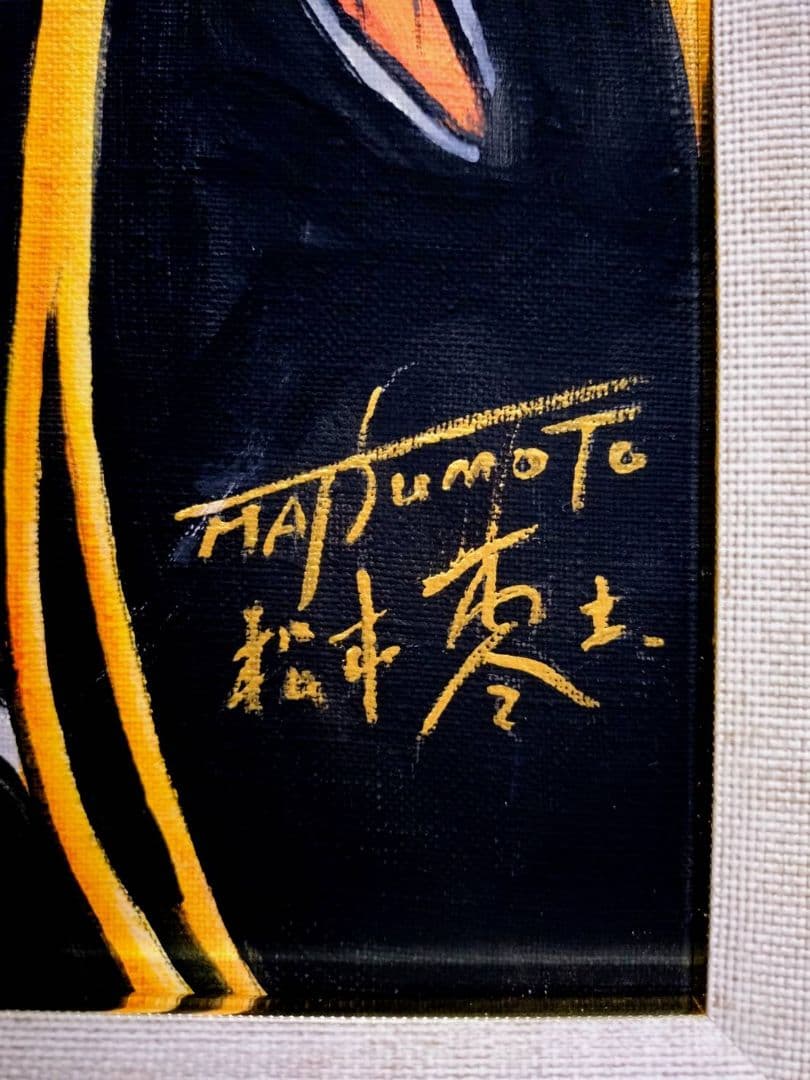 MATSumoTo
松本零士.